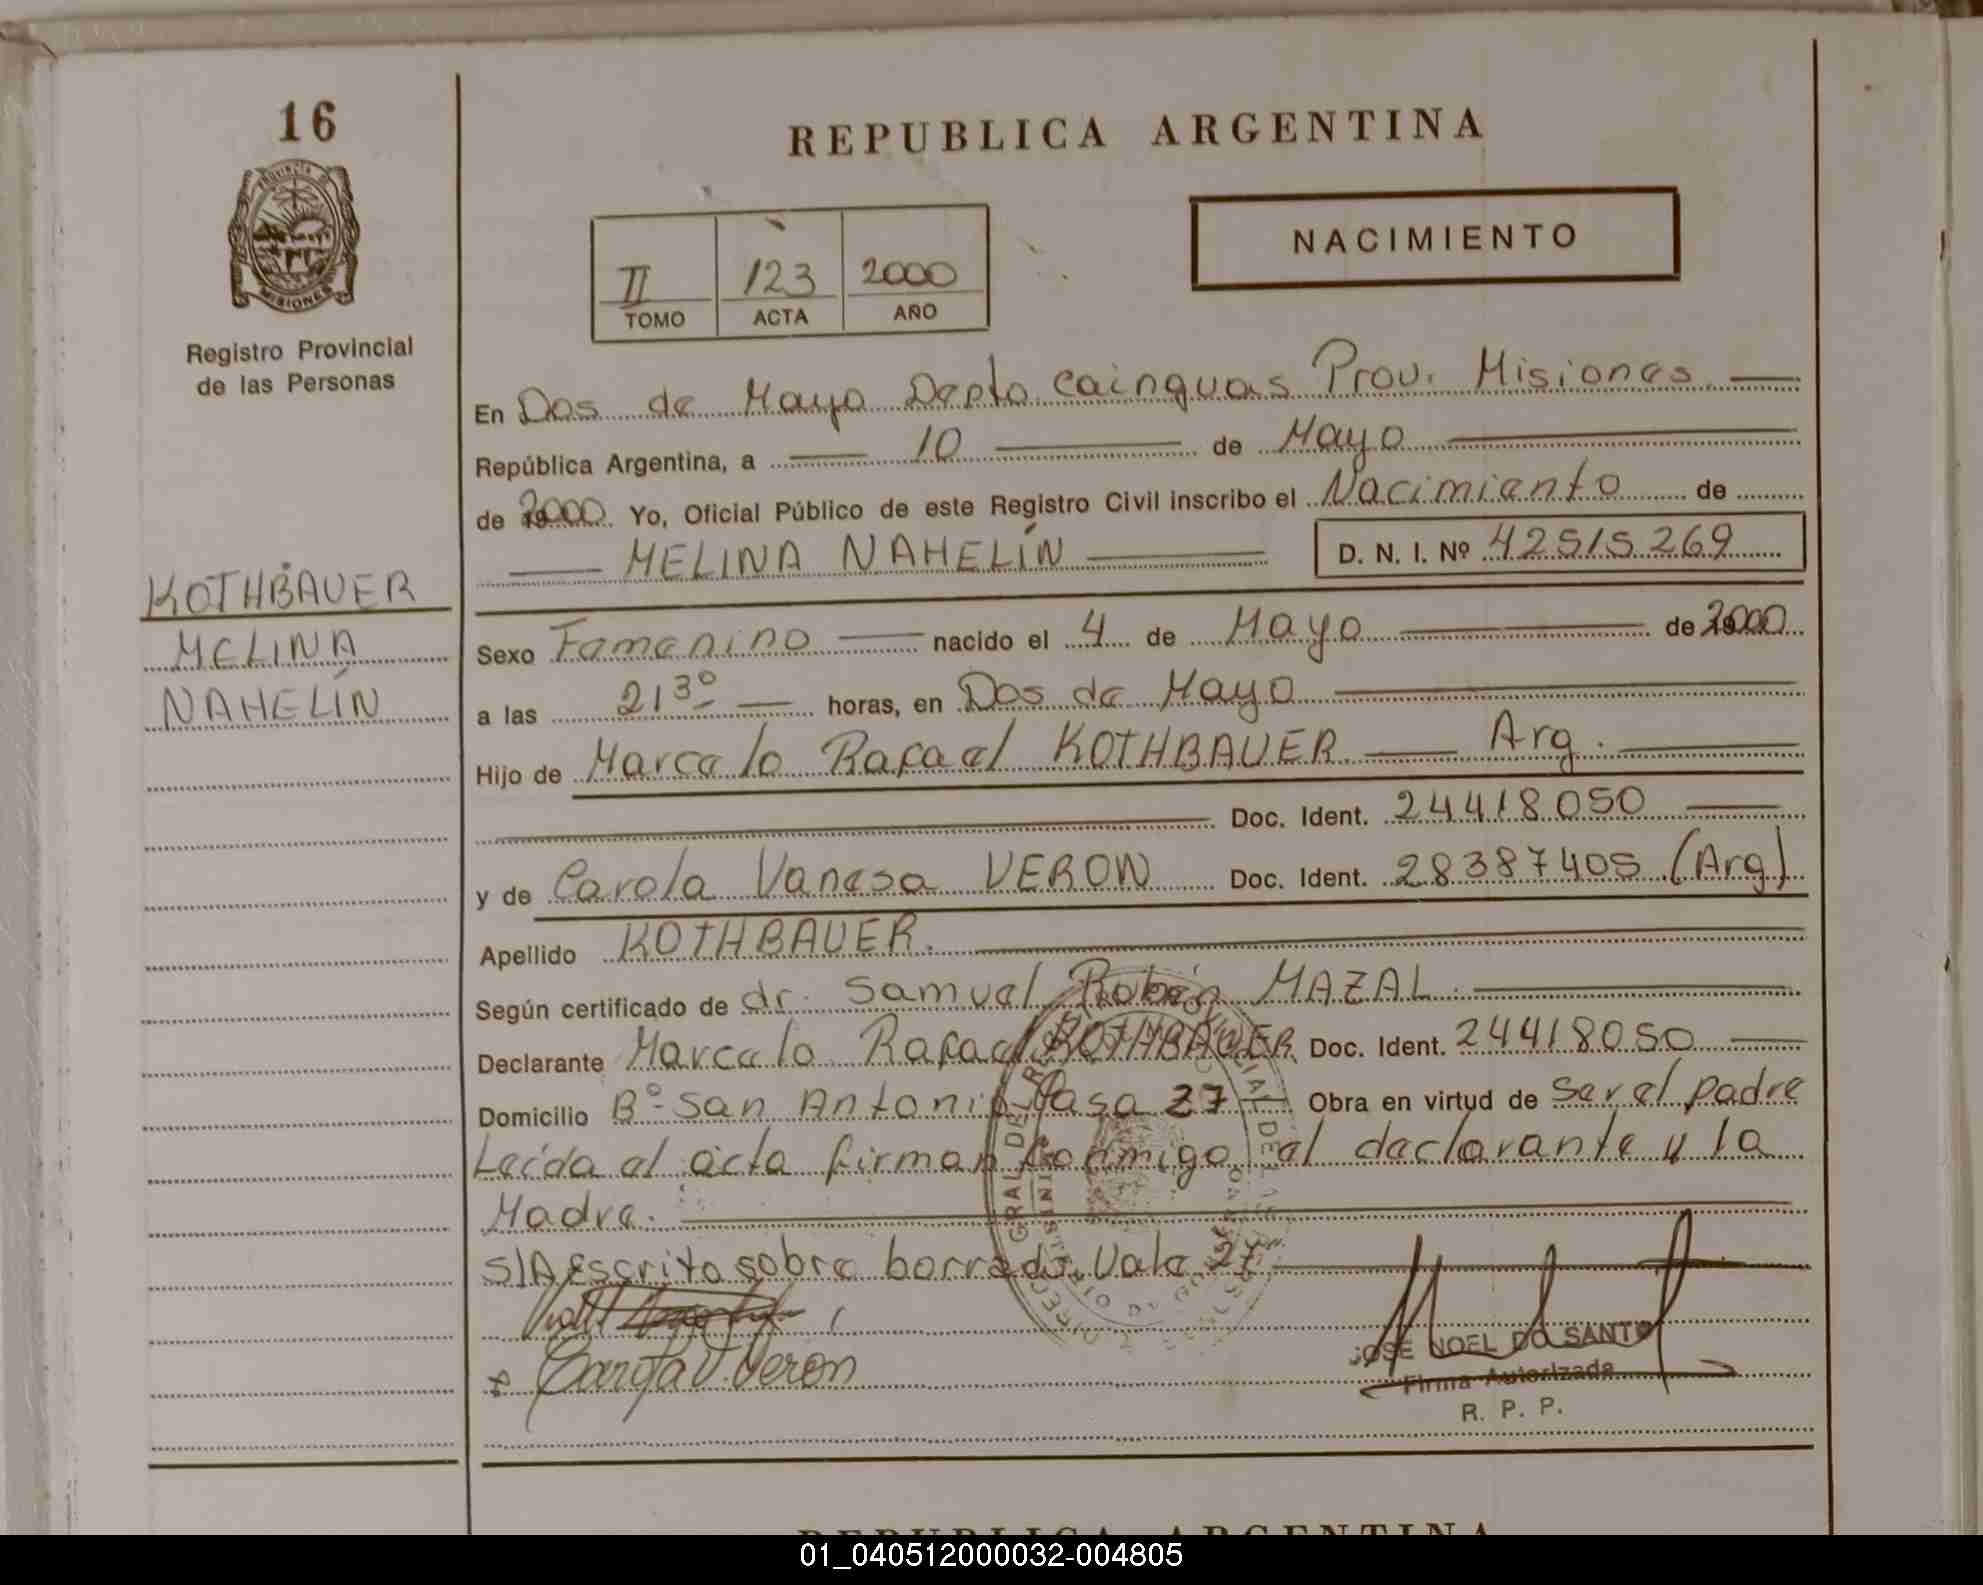 16
REPUBLICA ARGENTINA
PROVINCIA DE
MISIONES
NACIMIENTO
II 123 2000
TOMO ACTA AÑO
Registro Provincial
de las Personas
En Dos de Mayo Depto Cainguas Prov. Misiones
República Argentina, a 10 de Mayo
de 2000 Yo, Oficial Público de este Registro Civil inscribo el Nacimiento de
MELINA NAHELÍN D. N. I. Nº 42515269
KOTHBAUER
MELINA
NAHELÍN
Sexo Femenino nacido el 4 de Mayo de 2000
a las 21 30 horas, en Dos de Mayo
Hijo de Marcelo Rafael KOTHBAUER Arg.
Doc. Ident. 24418050
y de Carola Vanesa VERON Doc. Ident. 28387405 (Arg)
Apellido KOTHBAUER.
Según certificado de dr. Samuel Rubén MAZAL.
Declarante Marcelo Rafael KOTHBAUER Doc. Ident. 24418050
Domicilio Bº San Antonio Casa 27 Obra en virtud de ser el padre
Leída el acta firman conmigo el declarante y la
Madre.
S/A Escrito sobre borrado. Vale 27
Veron
JOSE NOEL DO SANTO
Firma Autorizada
R. P. P.
REPUBLICA ARGENTINA
01_040512000032-004805